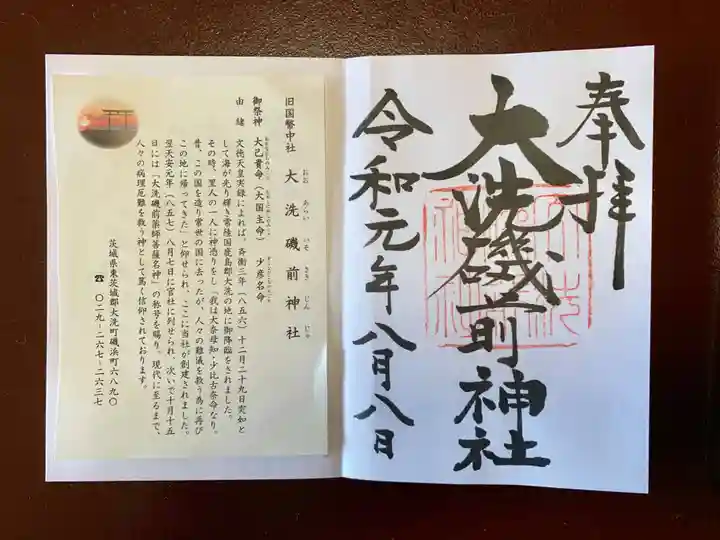 奉拝
大洗磯前神社
令和元年八月八日
旧国幣中社 大洗磯前神社
おお あらい いそ さき じん じゃ
御祭神 大己貴命(大国主命) 少彦名命
由緒 文徳天皇実録によれば、斉衡三年(八五六)十二月二十九日突如と
して海が光り輝き常陸国鹿島郡大洗の地に御降臨をされました。
その時、里人の一人に神憑りをし「我は大奈母知・少比古奈命なり。
昔、この国を造り常世の国に去ったが、人々の難儀を救う為に再び
この地に帰ってきた」と仰せられ、ここに当社が創建されました。
翌天安元年(八五七)八月七日に官社に列せられ、次いで十月十五
日には「大洗磯前薬師菩薩名神」の称号を賜り、現代に至るまで、
人々の病理厄難を救う神として篤く信仰されております。
茨城県東茨城郡大洗町磯浜町六八九〇
☎ 〇二九-二六七-二六三七